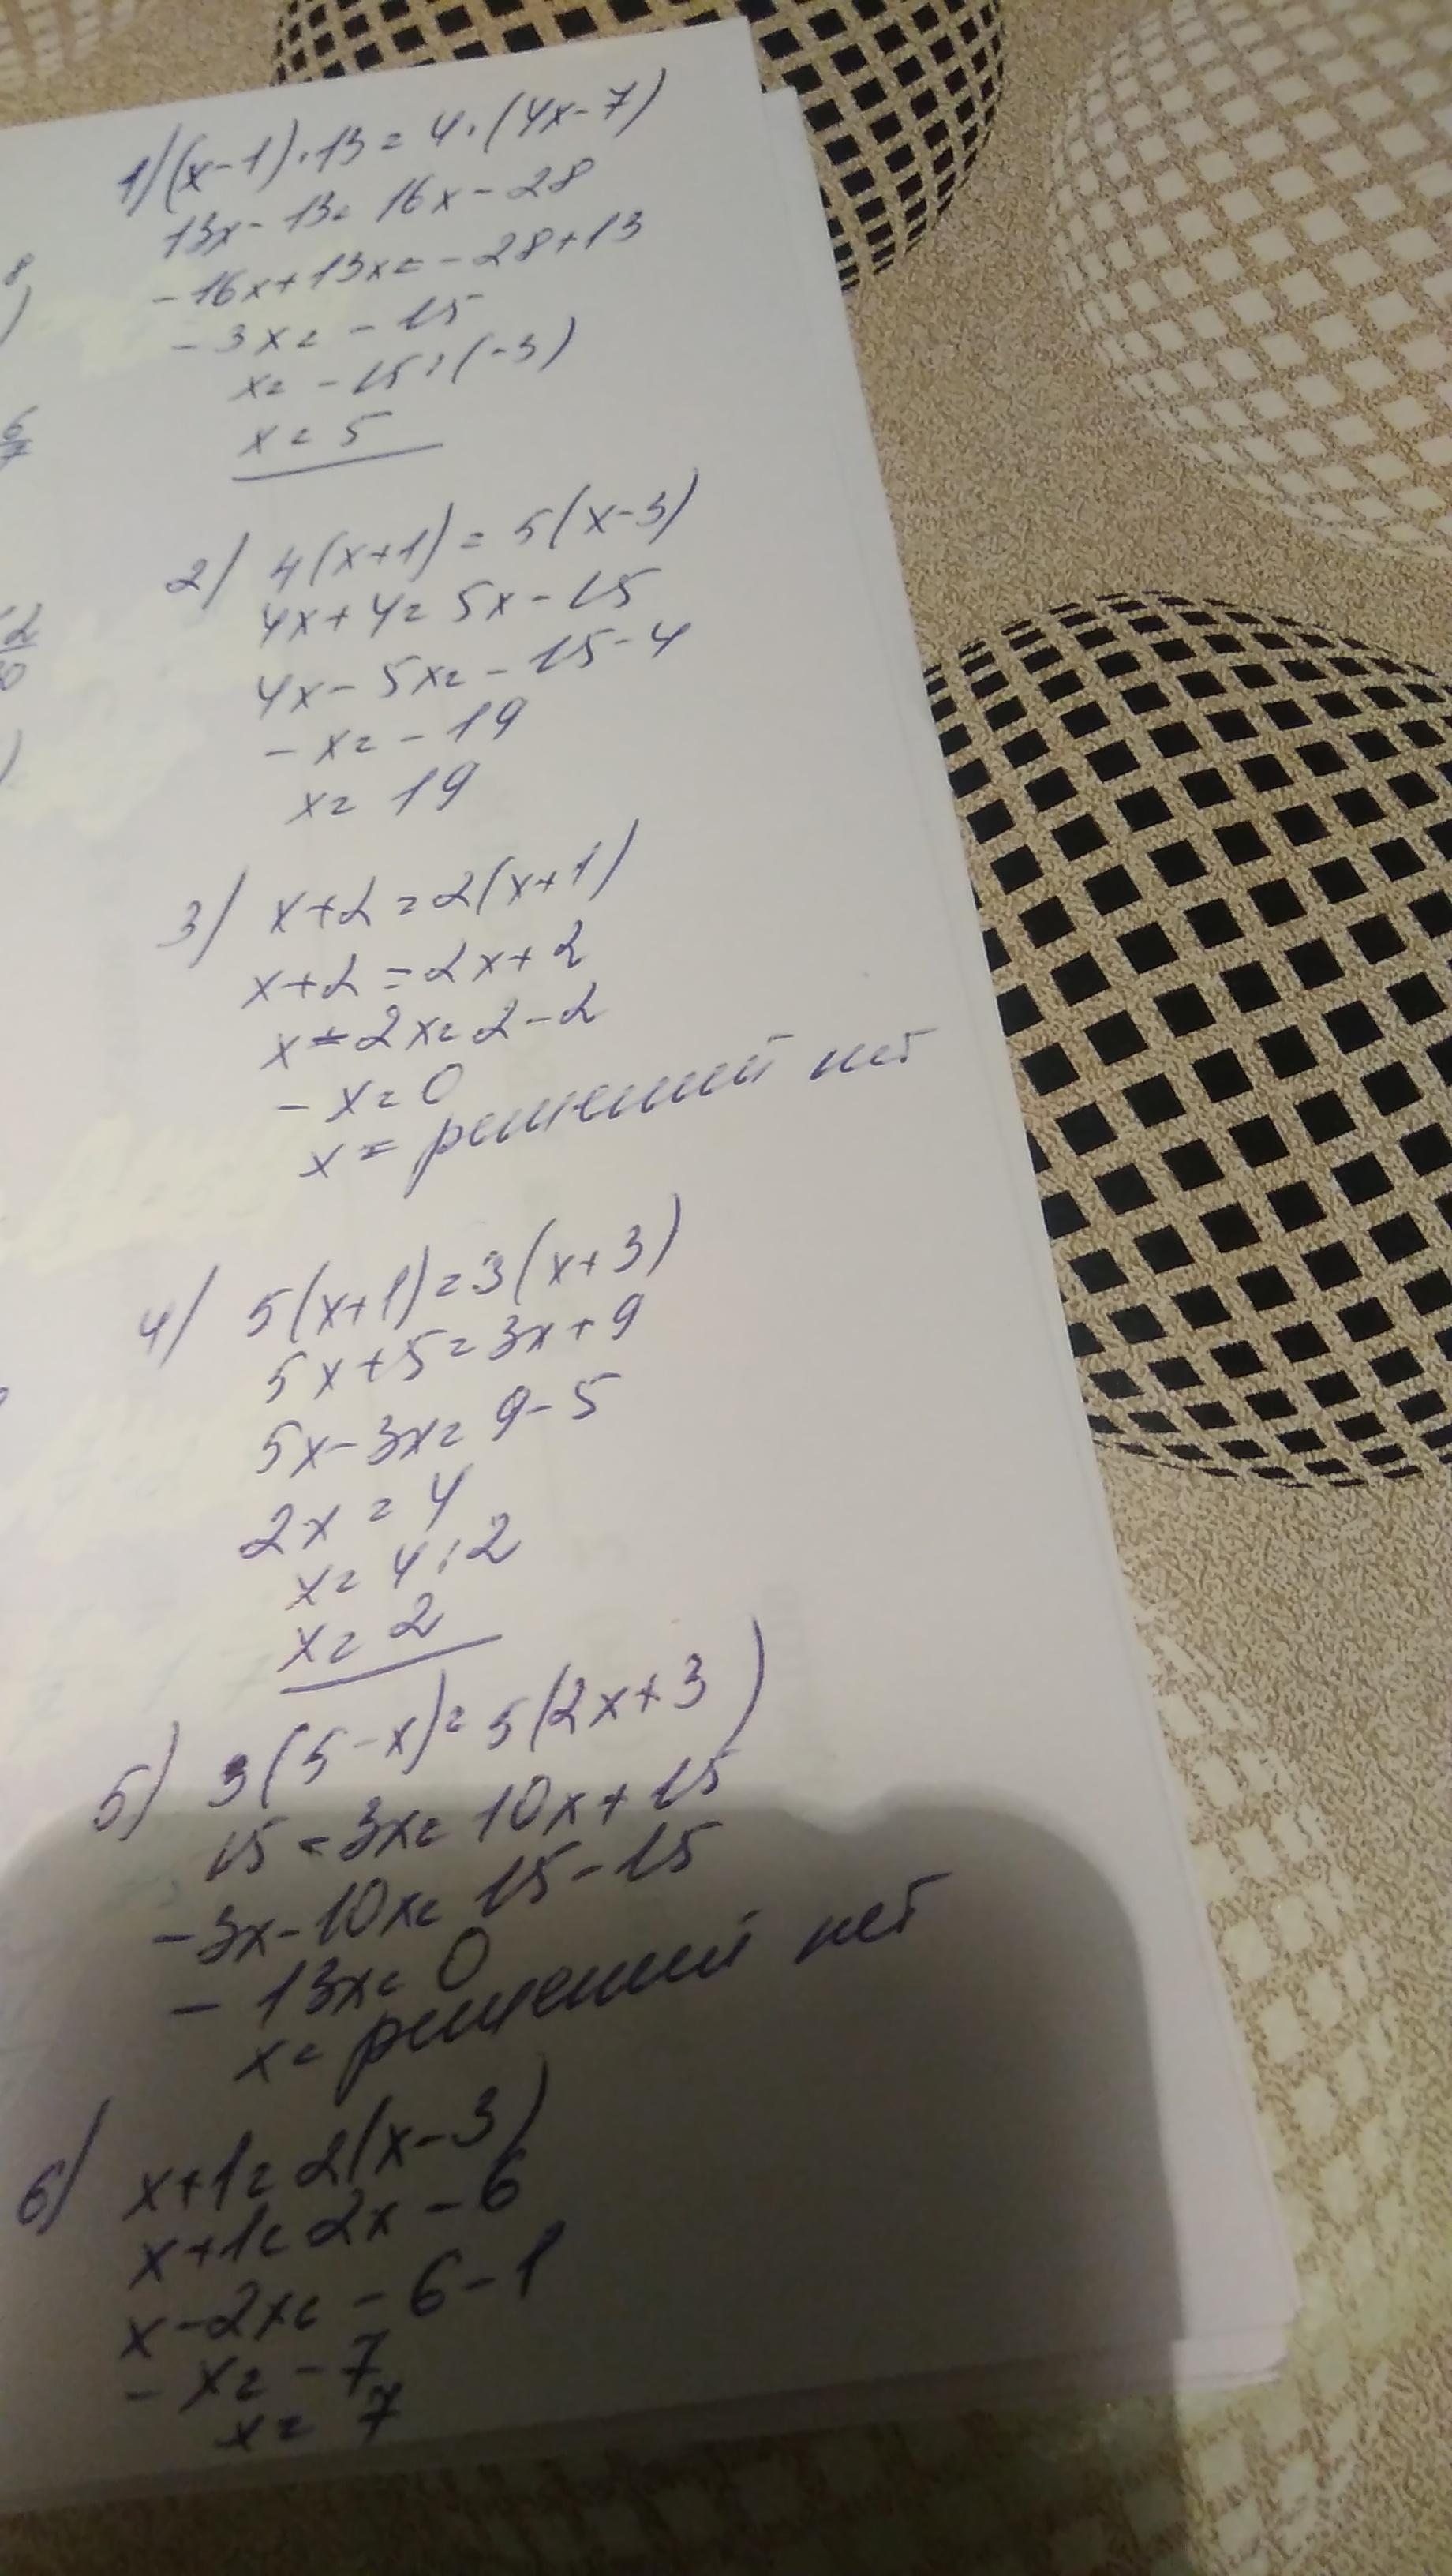 1) (x-1)·13=4·(4x-7)
13x-13=16x-28
-16x+13x=-28+13
-3x=-15
x=-15:(-3)
x=5
2) 4(x+1)=5(x-3)
4x+4=5x-15
4x-5x=-15-4
-x=-19
x=19
3) x+2=2(x+1)
x+2=2x+2
x-2x=2-2
-x=0
x=решений нет
4) 5(x+1)=3(x+3)
5x+5=3x+9
5x-3x=9-5
2x=4
x=4:2
x=2
5) 3(5-x)=5(2x+3)
15-3x=10x+15
-3x-10x=15-15
-13x=0
x=решений нет
6) x+1=2(x-3)
x+1=2x-6
x-2x=-6-1
-x=-7
x=7